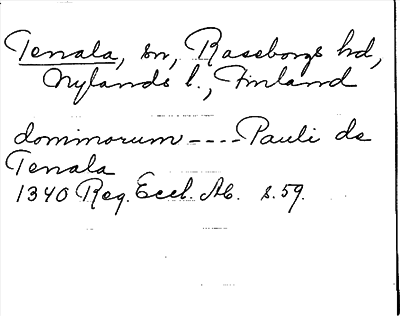 Tenala, sn, Raseborgs hd,
Nylands l., Finland
dominorum ---- Pauli de
Tenala
1340 Reg. Eccl. Ab. s. 59.